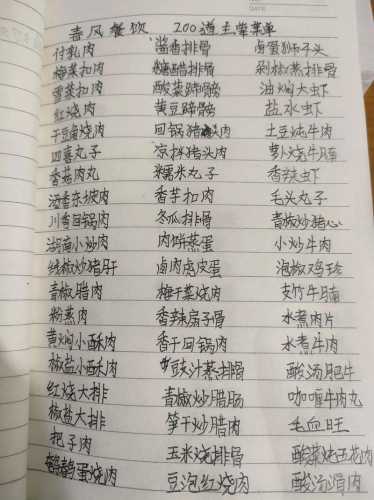 春风餐饮 200道主荤菜单
付乳肉 酱香排骨 卤蛋狮子头
梅菜扣肉 糖醋排骨 剁椒蒸排骨
雪菜扣肉 酸菜蹄髈 油焖大虾
红烧肉 黄豆蹄髈 盐水虾
干豆角烧肉 回锅猪头肉 土豆炖牛肉
四喜丸子 凉拌猪头肉 萝卜烧牛腩
香菇肉丸 糯米丸子 香辣虾
酒香东坡肉 香芋扣肉 毛头丸子
川香回锅肉 冬瓜排骨 青椒炒猪心
湖南小炒肉 肉饼蒸蛋 小炒牛肉
线椒炒猪肝 卤肉虎皮蛋 泡椒鸡珍
青椒腊肉 梅干菜烧肉 支竹牛腩
粉蒸肉 香辣扇子骨 水煮肉片
黄焖小酥肉 香干回锅肉 水煮牛肉
椒盐小酥肉 豉汁蒸排骨 酸汤肥牛
红烧大排 青椒炒腊肠 咖喱牛肉丸
椒盐大排 笋干炒腊肉 毛血旺
把子肉 玉米烧排骨 酸菜炖五花肉
鹌鹑蛋烧肉 豆泡红烧肉 酸汤滑肉